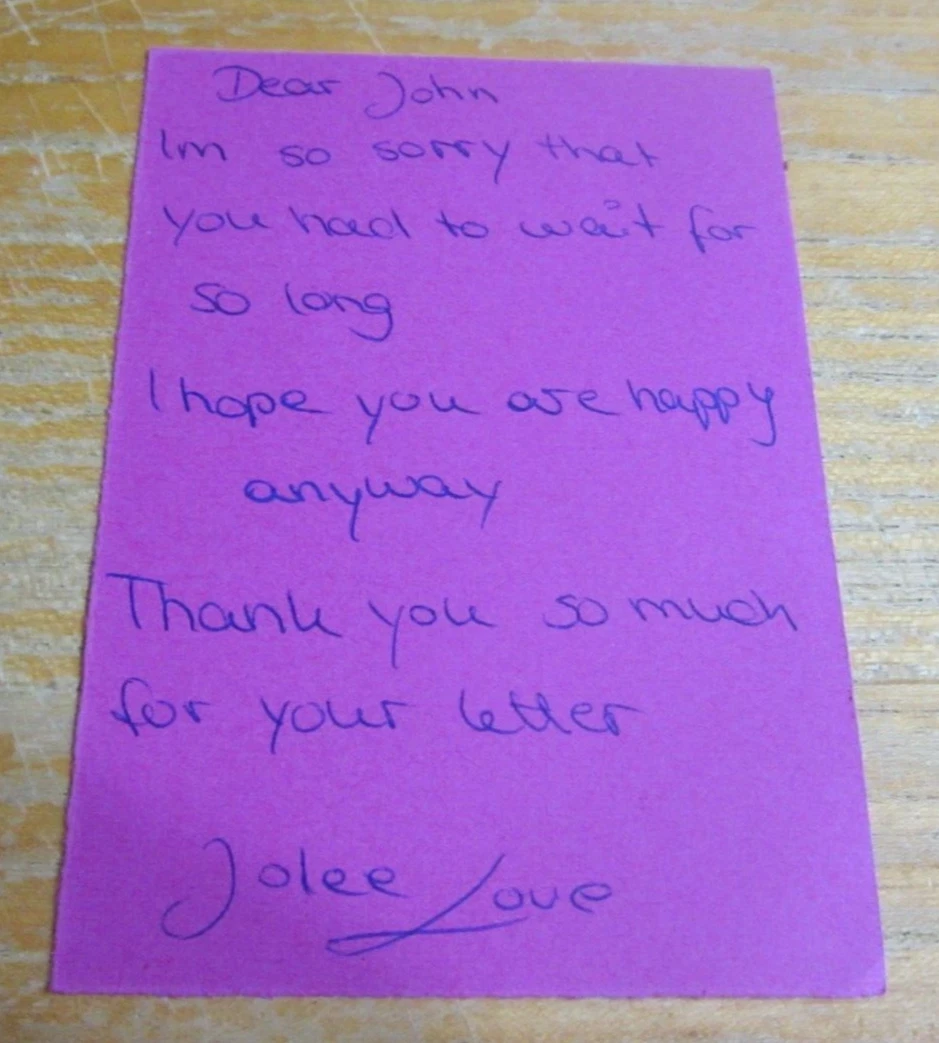 Dear John
Im so sorry that
you had to wait for
so long
I hope you are happy
anyway
Thank you so much
for your letter
Jolee Love